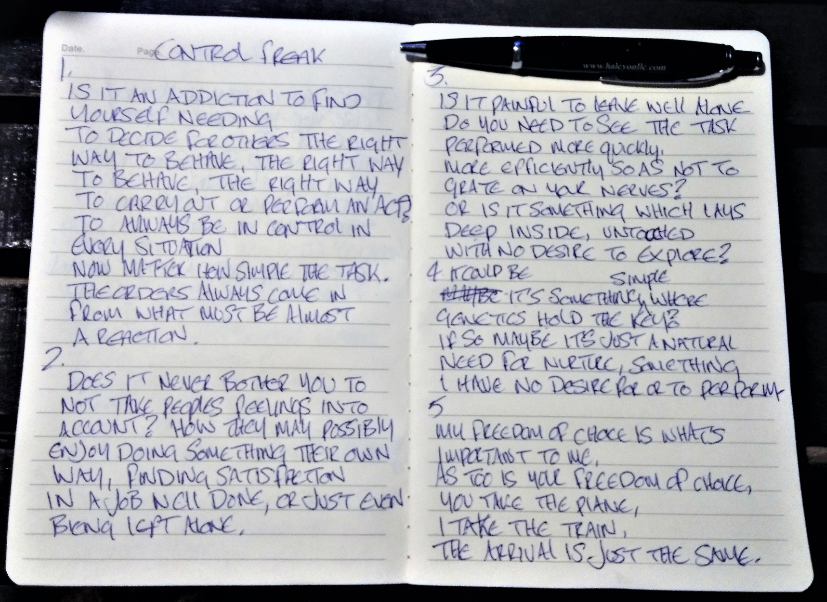 Date.
Page
CONTROL FREAK
1.
IS IT AN ADDICTION TO FIND
YOURSELF NEEDING
TO DECIDE FOR OTHERS THE RIGHT
WAY TO BEHAVE, THE RIGHT WAY
TO BEHAVE, THE RIGHT WAY
TO CARRY OUT OR PERFORM AN ACT?
TO ALWAYS BE IN CONTROL IN
EVERY SITUATION
NOW MATTER HOW SIMPLE THE TASK.
THE ORDERS ALWAYS COME IN
FROM WHAT MUST BE ALMOST
A REACTION.
2.
DOES IT NEVER BOTHER YOU TO
NOT TAKE PEOPLES FEELINGS INTO
ACCOUNT? HOW THEY MAY POSSIBLY
ENJOY DOING SOMETHING THEIR OWN
WAY, FINDING SATISFACTION
IN A JOB WELL DONE, OR JUST EVEN
BEING LEFT ALONE.
www.halcyonllc.com
3.
IS IT PAINFUL TO LEAVE WELL ALONE
DO YOU NEED TO SEE THE TASK
PERFORMED MORE QUICKLY,
MORE EFFICIENTLY SO AS NOT TO
GRATE ON YOUR NERVES?
OR IS IT SOMETHING WHICH LAYS
DEEP INSIDE, UNTOUCHED
WITH NO DESIRE TO EXPLORE?
4 IT COULD BE
SIMPLE
IT'S SOMETHING WHERE
GENETICS HOLD THE KEY?
IF SO MAYBE ITS JUST A NATURAL
NEED FOR NURTURE, SOMETHING
I HAVE NO DESIRE FOR OR TO PERFORM
5
MY FREEDOM OF CHOICE IS WHAT'S
IMPORTANT TO ME,
AS TOO IS YOUR FREEDOM OF CHOICE,
YOU TAKE THE PLANE,
I TAKE THE TRAIN,
THE ARRIVAL IS JUST THE SAME.